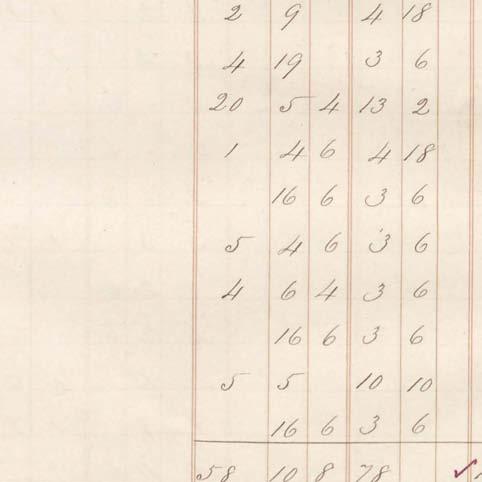 2 9 4 18
4 19 3 6
20 5 4 13 2
1 4 6 4 18
16 6 3 6
5 4 6 3 6
4 6 4 3 6
16 6 3 6
5 5 10 10
16 6 3 6
58 10 8 78